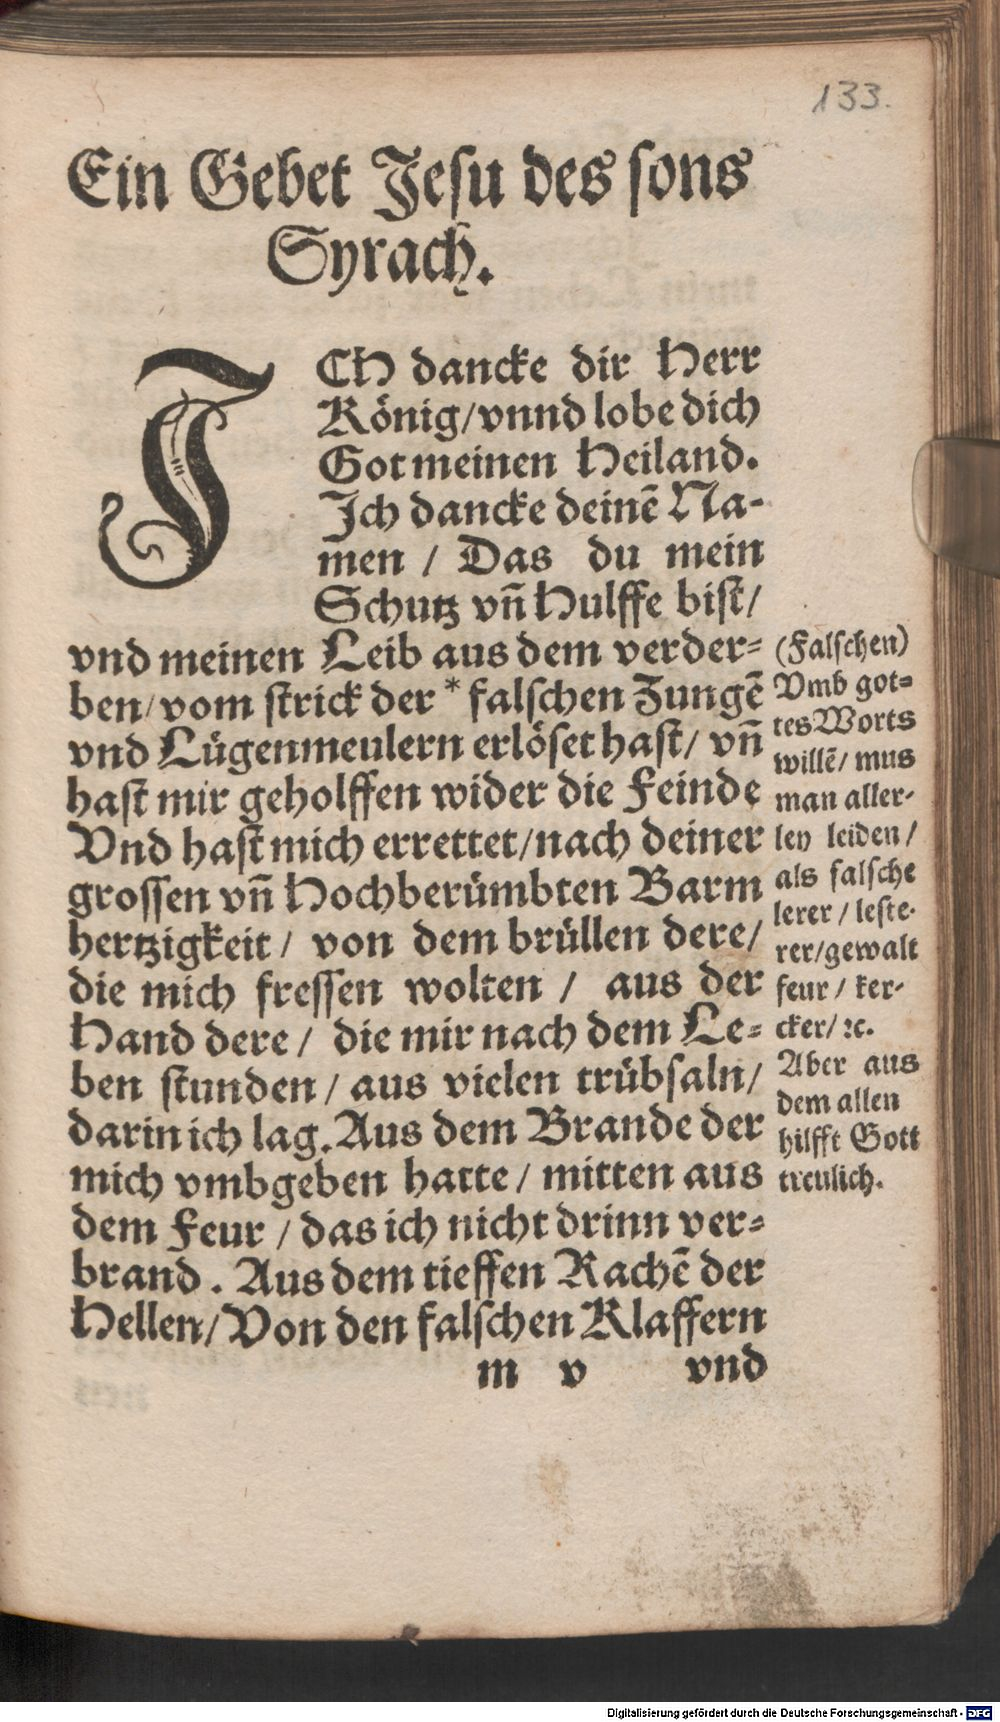 133.
Ein Gebet Jesu des sons
Syrach.
ICH dancke dir Herr
König/vnnd lobe dich
Got meinen Heiland.
Ich dancke deinē Na-
men / Das du mein
Schutz vn̄ Hulffe bist/
vnd meinen Leib aus dem verder-
ben/vom strick der * falschen Zungē
vnd Lügenmeulern erlöset hast/ vn̄
hast mir geholffen wider die Feinde
Vnd hast mich errettet/nach deiner
grossen vn̄ Hochberümbten Barm
hertzigkeit/ von dem brüllen dere/
die mich fressen wolten / aus der
Hand dere/ die mir nach dem Le-
ben stunden/ aus vielen trübsaln/
darin ich lag. Aus dem Brande der
mich vmbgeben hatte/ mitten aus
dem Feur / das ich nicht drinn ver-
brand. Aus dem tieffen Rachē der
Hellen/Von den falschen Klaffern
m v vnd
(Falschen)
Vmb got-
tes Worts
willē/ mus
man aller-
ley leiden/
als falsche
lerer/ leste-
rer/gewalt
feur/ ker-
cker/ ꝛc.
Aber aus
dem allen
hilfft Gott
treulich.
Digitalisierung gefördert durch die Deutsche Forschungsgemeinschaft - DFG